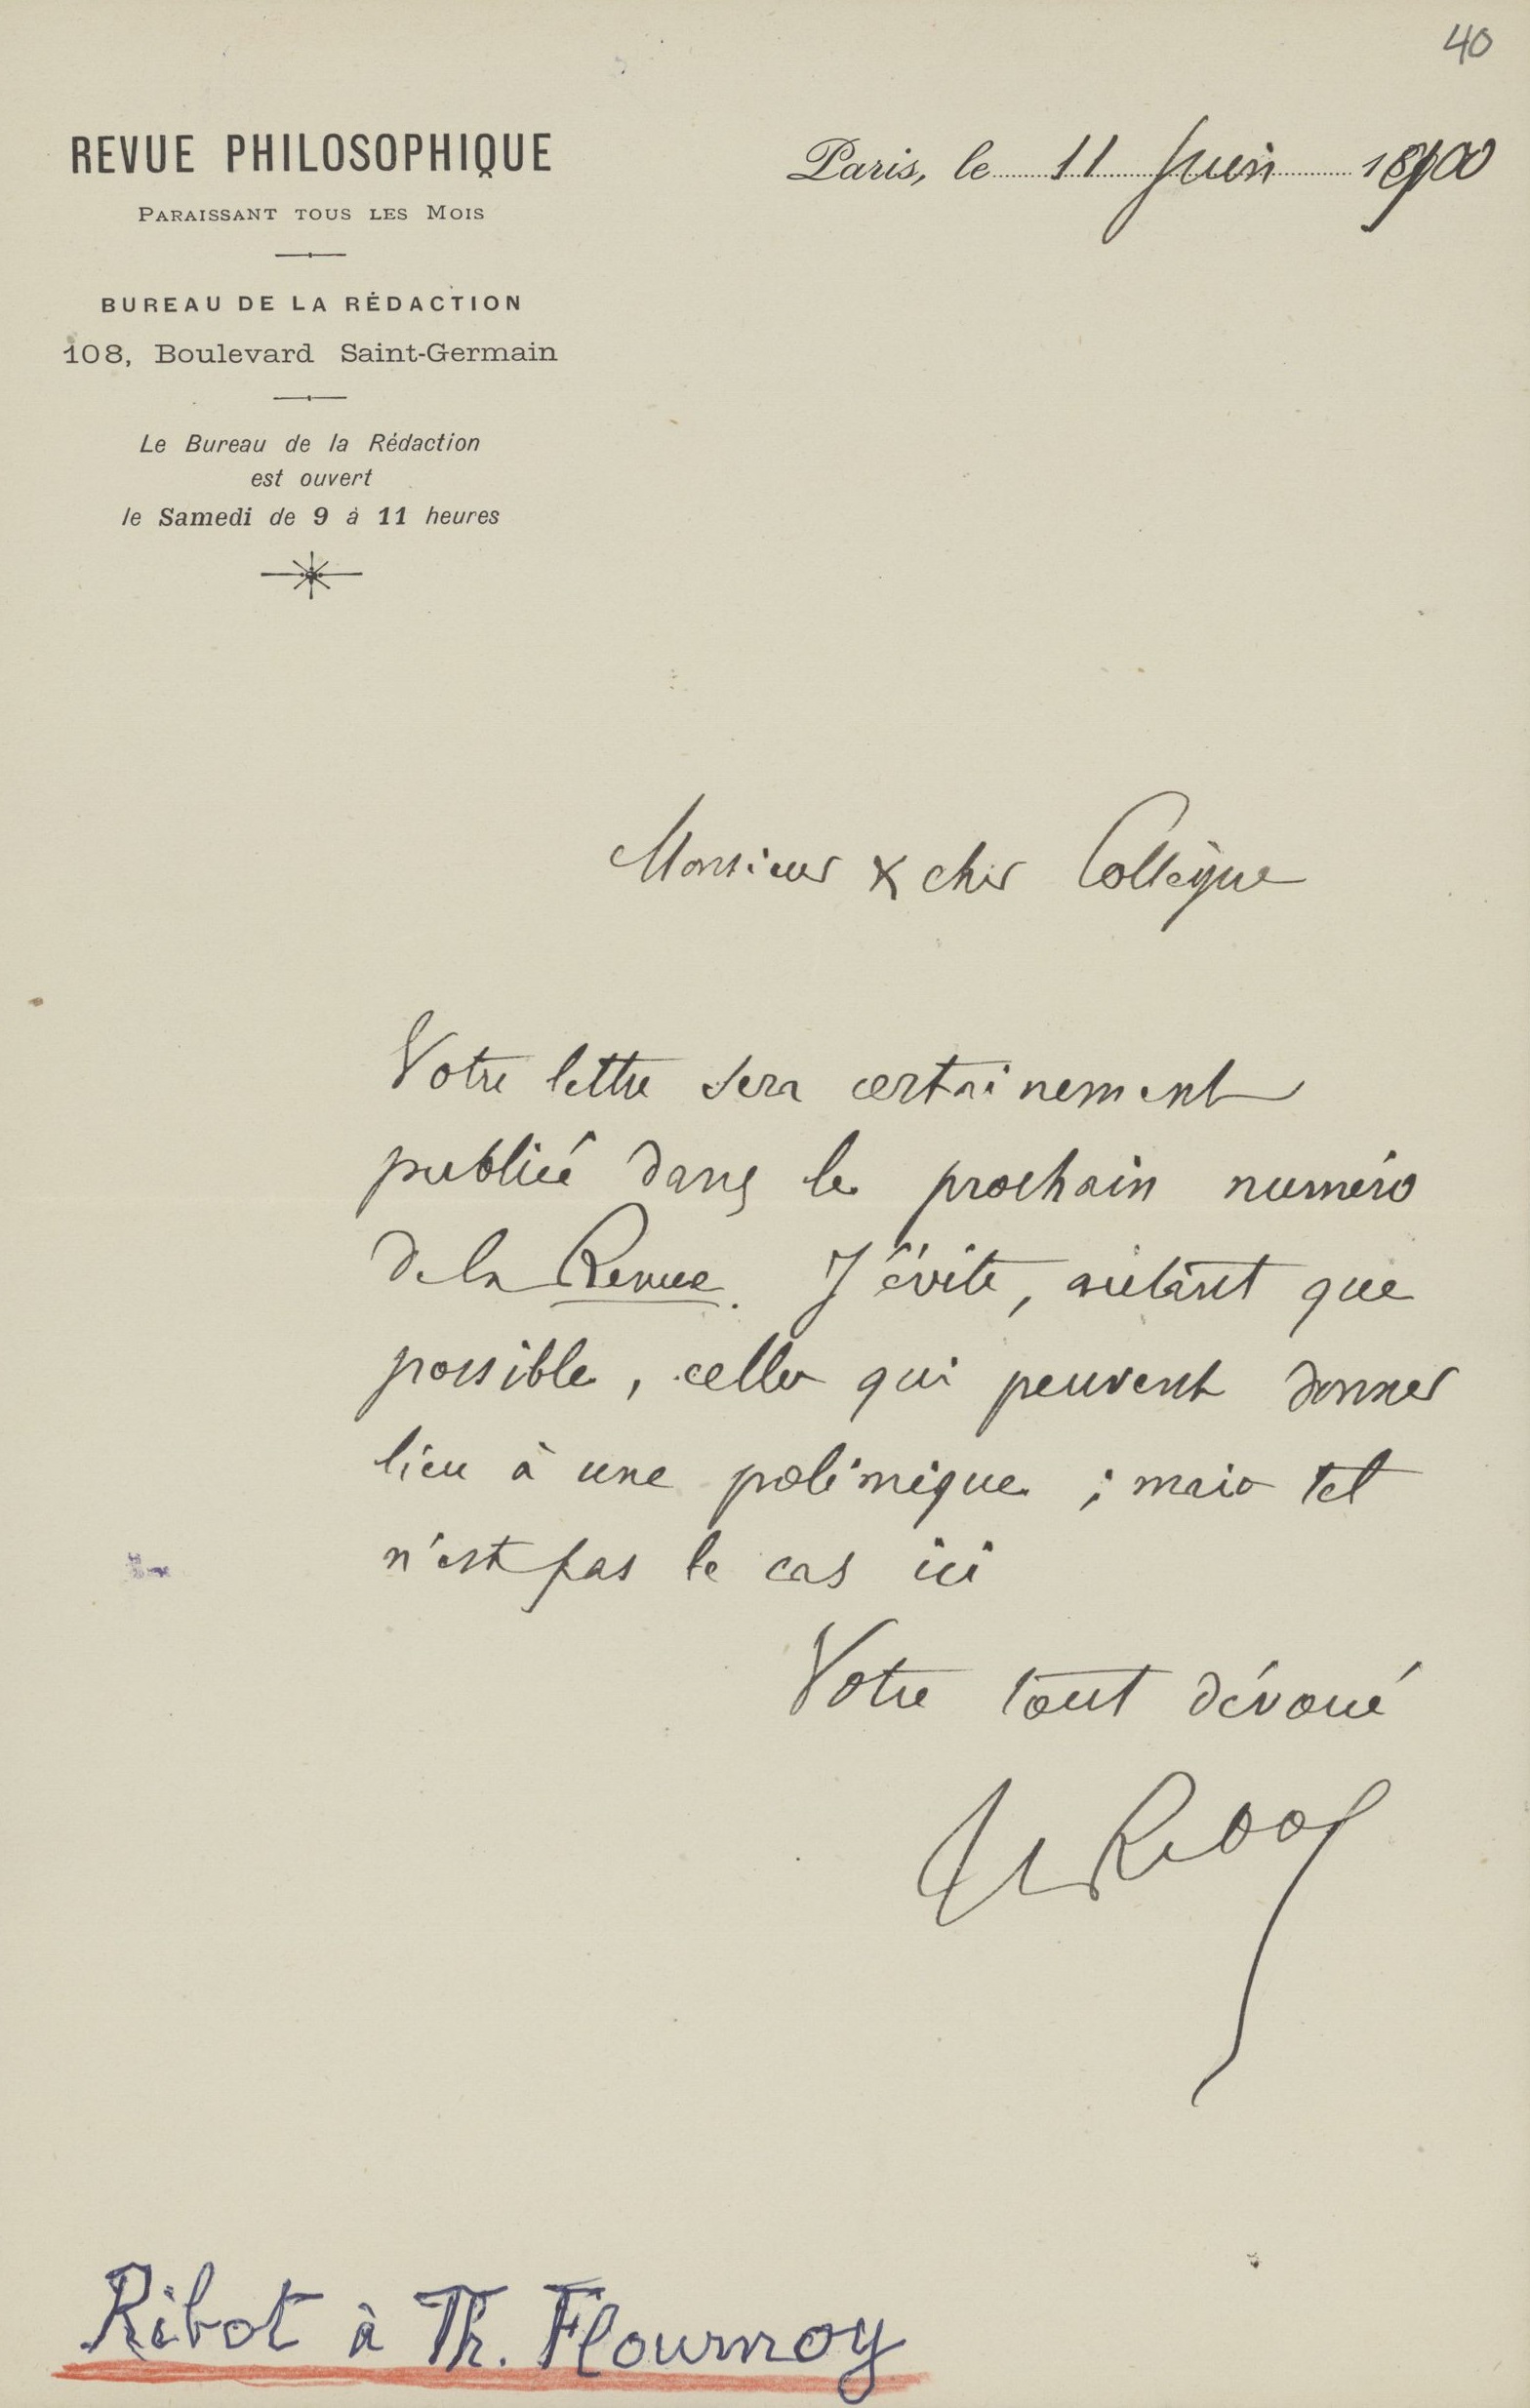 40
REVUE PHILOSOPHIQUE
PARAISSANT TOUS LES MOIS
BUREAU DE LA RÉDACTION
108, Boulevard Saint-Germain
Le Bureau de la Rédaction
est ouvert
le Samedi de 9 à 11 heures
Paris, le 11 Juin 1900
Monsieur & cher Collègue
Votre lettre sera certainement
publiée dans le prochain numéro
de la Revue. J'évite, autant que
possible, celles qui peuvent donner
lieu à une polémique ; mais tel
n'est pas le cas ici
Votre tout dévoué
Th Ribot
Ribot à Th. Flournoy